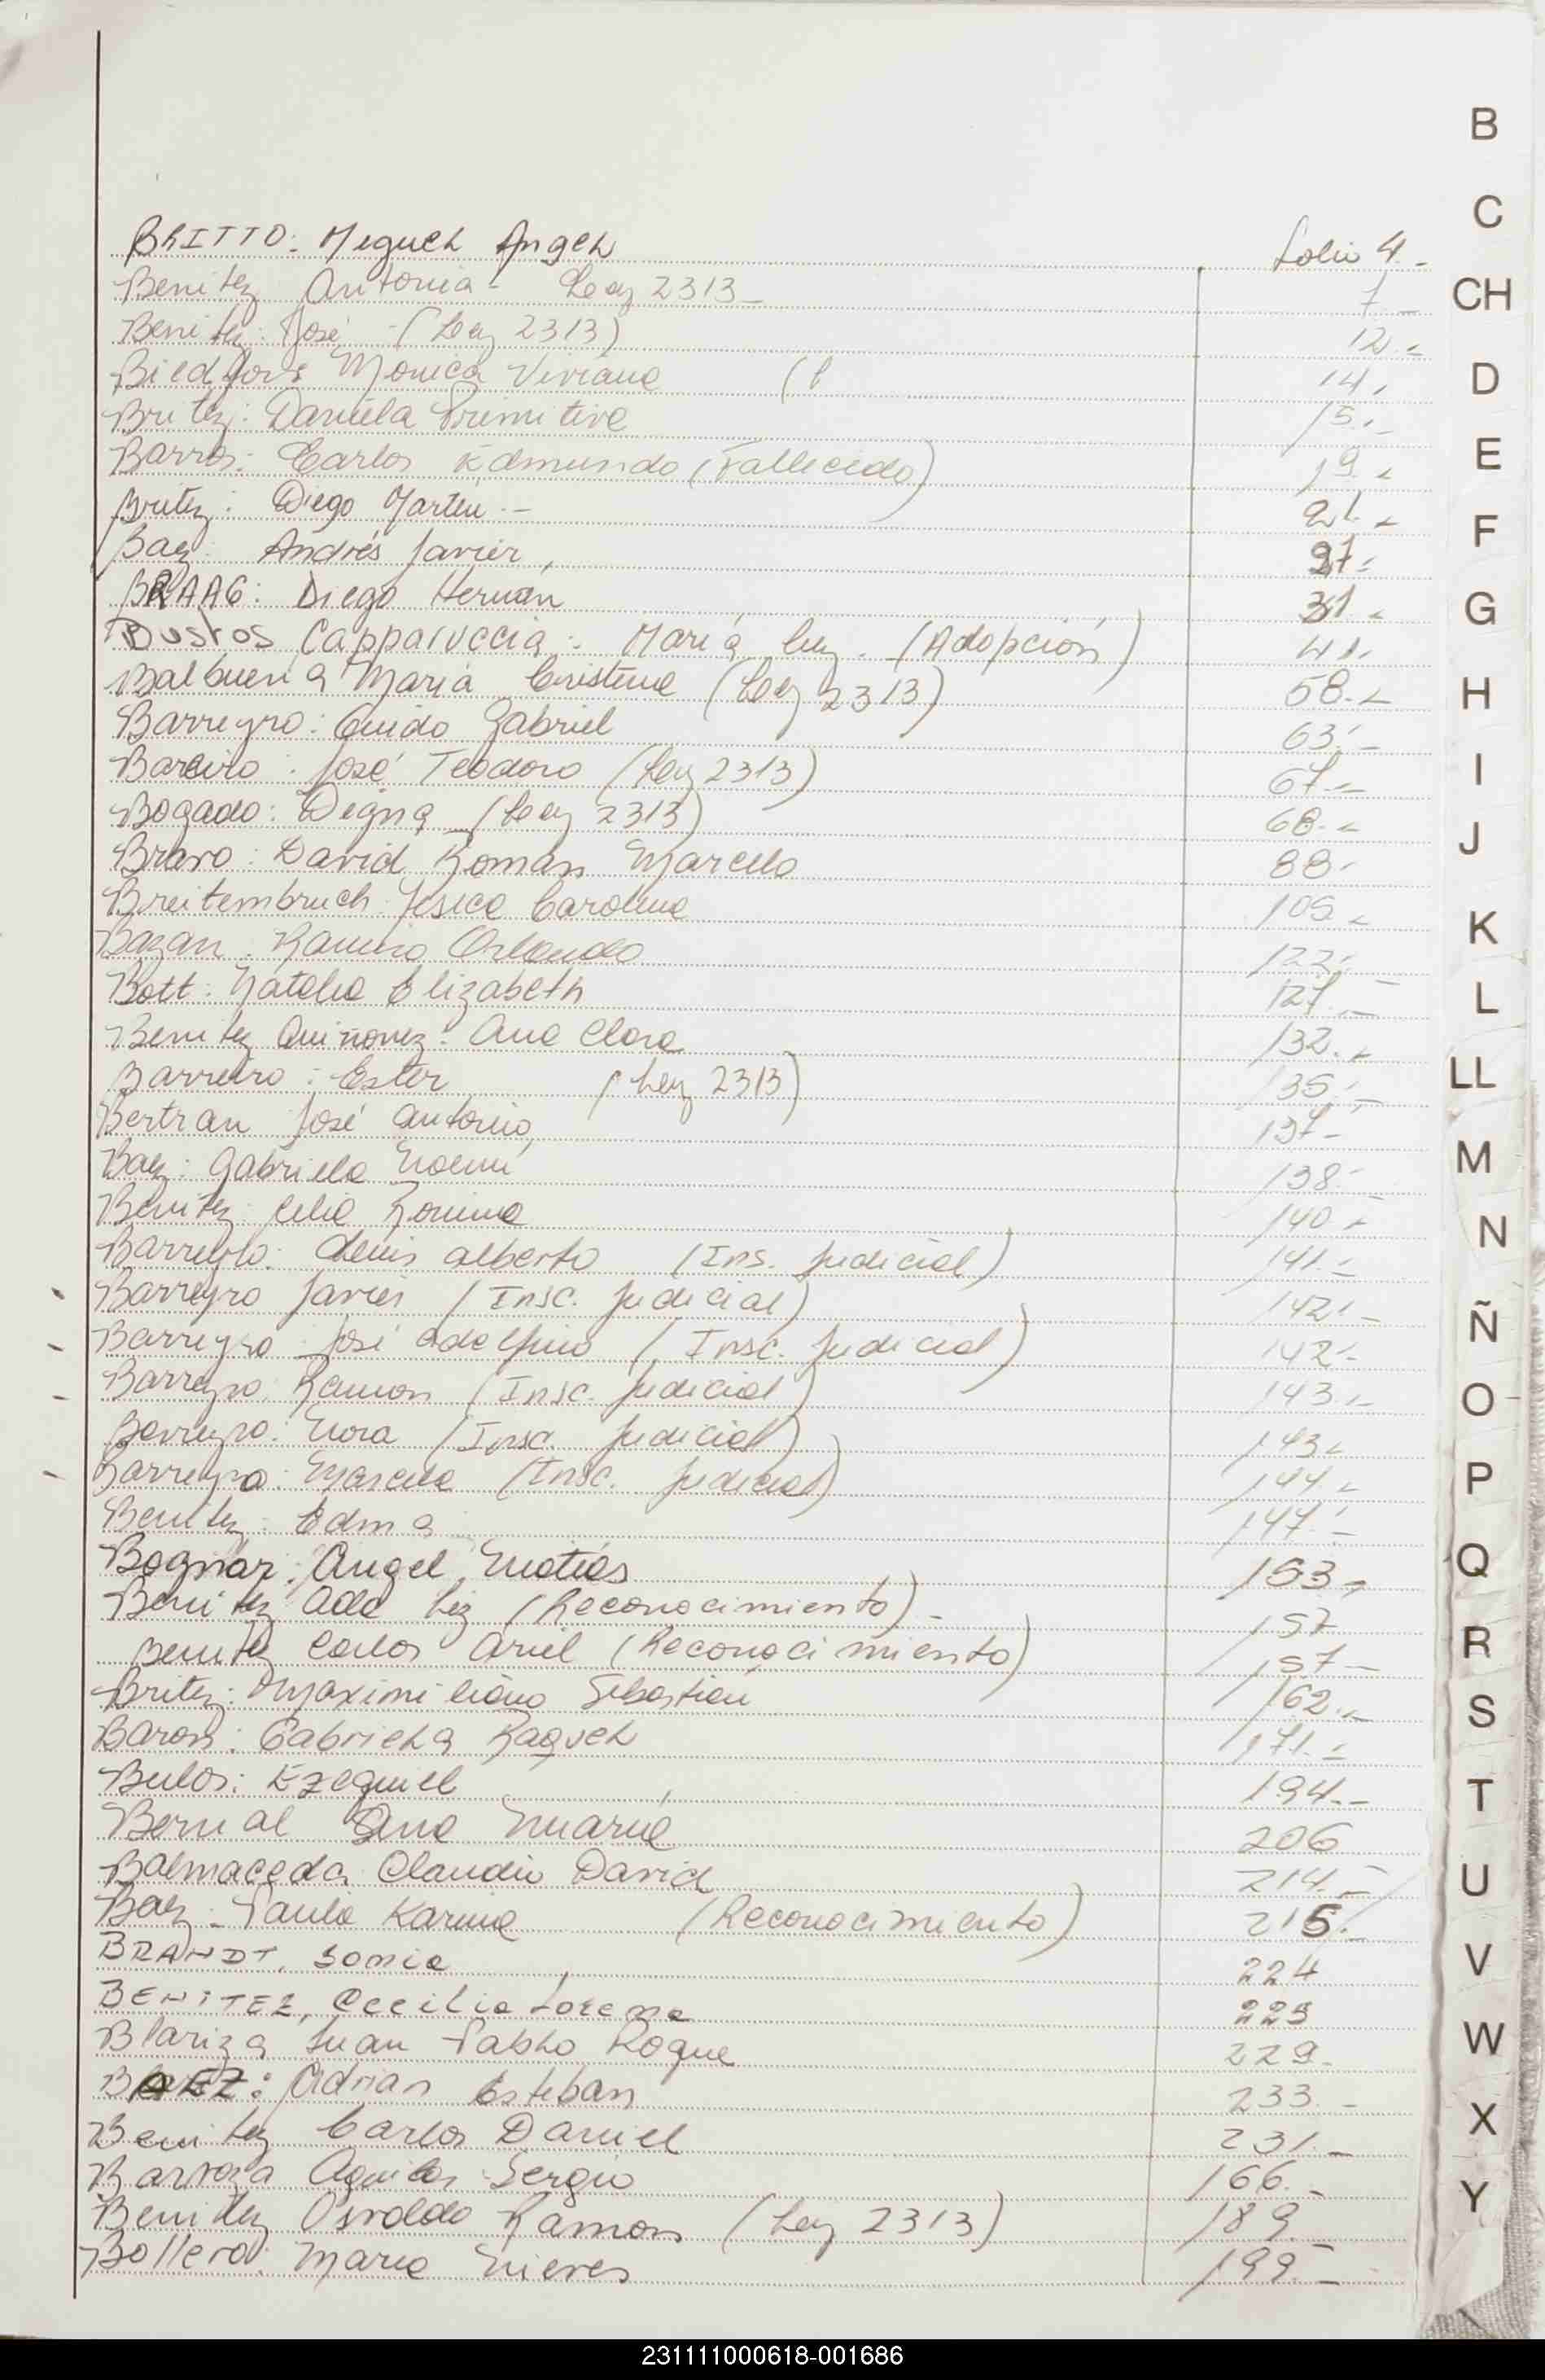 BRITTO: Miguel Angel folio 4.-
Benitez Antonia - Ley 2313- 7.-
Benitez: José - (Ley 2313) 12.-
Monica Viviana 14.
Britez: Daniela Primitiva 15.-
Barros: Carlos Edmundo (Fallecido) 19.-
Britez: Diego Martin.- 21.-
Baez: Andrés Javier, 27.-
BRAAG: Diego Hernán 31.-
Bustos Capparuccia: María Luz. (Adopción) 41.
Balbuena María Cristina (Ley 2313) 58.-
Barreyro: Guido Gabriel 63.-
Bareiro: José Teodoro (Ley 2313) 67.-
Bogado: Digna (Ley 2313) 68.-
Bravo: David Román Marcelo 88.
Breitembruch: Jesica Carolina 105.-
Bazan: Ramiro Orlando 122.-
Bott: Natalia Elizabeth 127.-
Benitez Quiñonez: Ana Clara 132.-
Barreiro: Ester (Ley 2313) 135.-
Bertran José Antonio, 137-
Baez: Gabriela Noemí 138.-
Benitez: Celia Romina 140.-
Barreyro: Luis Alberto (Ins. Judicial) 141.-
Barreyro Javier (Insc. Judicial) 142.-
Barreyro José Adolfino (Insc. Judicial) 142.-
Barreyro: Ramon (Insc. Judicial) 143.-
Barreyro: Nora (Insc. Judicial) 143.-
Barreyro: Marcela (Insc. Judicial) 144.-
Benitez: Edma 147.-
Bognar: Angel Matías 153.-
Benitez Ada Liz (Reconocimiento)- 157
Benitez Carlos Ariel (Reconocimiento) 157-
Britez: Maximiliano Sebastian 162.-
Baron: Gabriela Raquel 171.-
Bulos: Ezequiel 194.-
Bernal Ana María 206
Balmaceda Claudio David 214.-
Baez: Paula Karina (Reconocimiento) 215.-
BRANDT, Sonia 224
BENITEZ, Cecilia Lorena 225
Blariza Juan Pablo Roque 229.
BAEZ: Adrian Esteban 233.-
Benitez Carlos Daniel 231.-
Barroza Aguilar: Sergio 166.-
Benitez Osvaldo Ramon (Ley 2313) 189.-
Bollero: Maria Nieves 199.-
B
C
CH
D
E
F
G
H
I
J
K
L
LL
M
N
Ñ
O
P
Q
R
S
T
U
V
W
X
Y
231111000618-001686